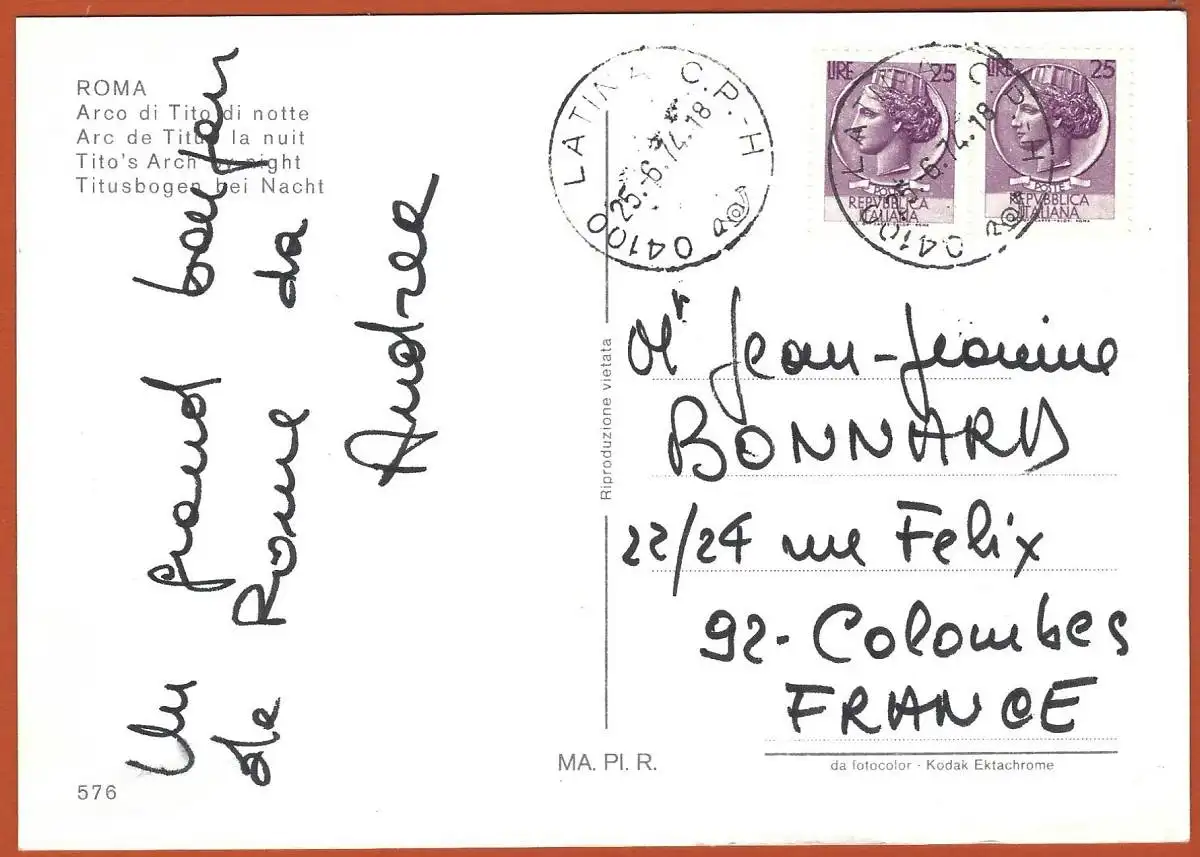 ROMA
Arco di Tito di notte
Arc de Titus la nuit
Tito's Arch by night
Titusbogen bei Nacht
Un grand
de Rome da
Andrea
576
Riproduzione vietata
MA. PI. R.
LATINA C.P.-H
25.-6.74.-18
04100
LIRE 25
POSTE
REPVBBLICA
ITALIANA
LIRE 25
POSTE
REPVBBLICA
ITALIANA
LATINA C.P.-H
25.-6.74.-18
04100
Mr Jean-Jeanine
BONNARD
22/24 rue Felix
92-Colombes
FRANCE
da fotocolor - Kodak Ektachrome